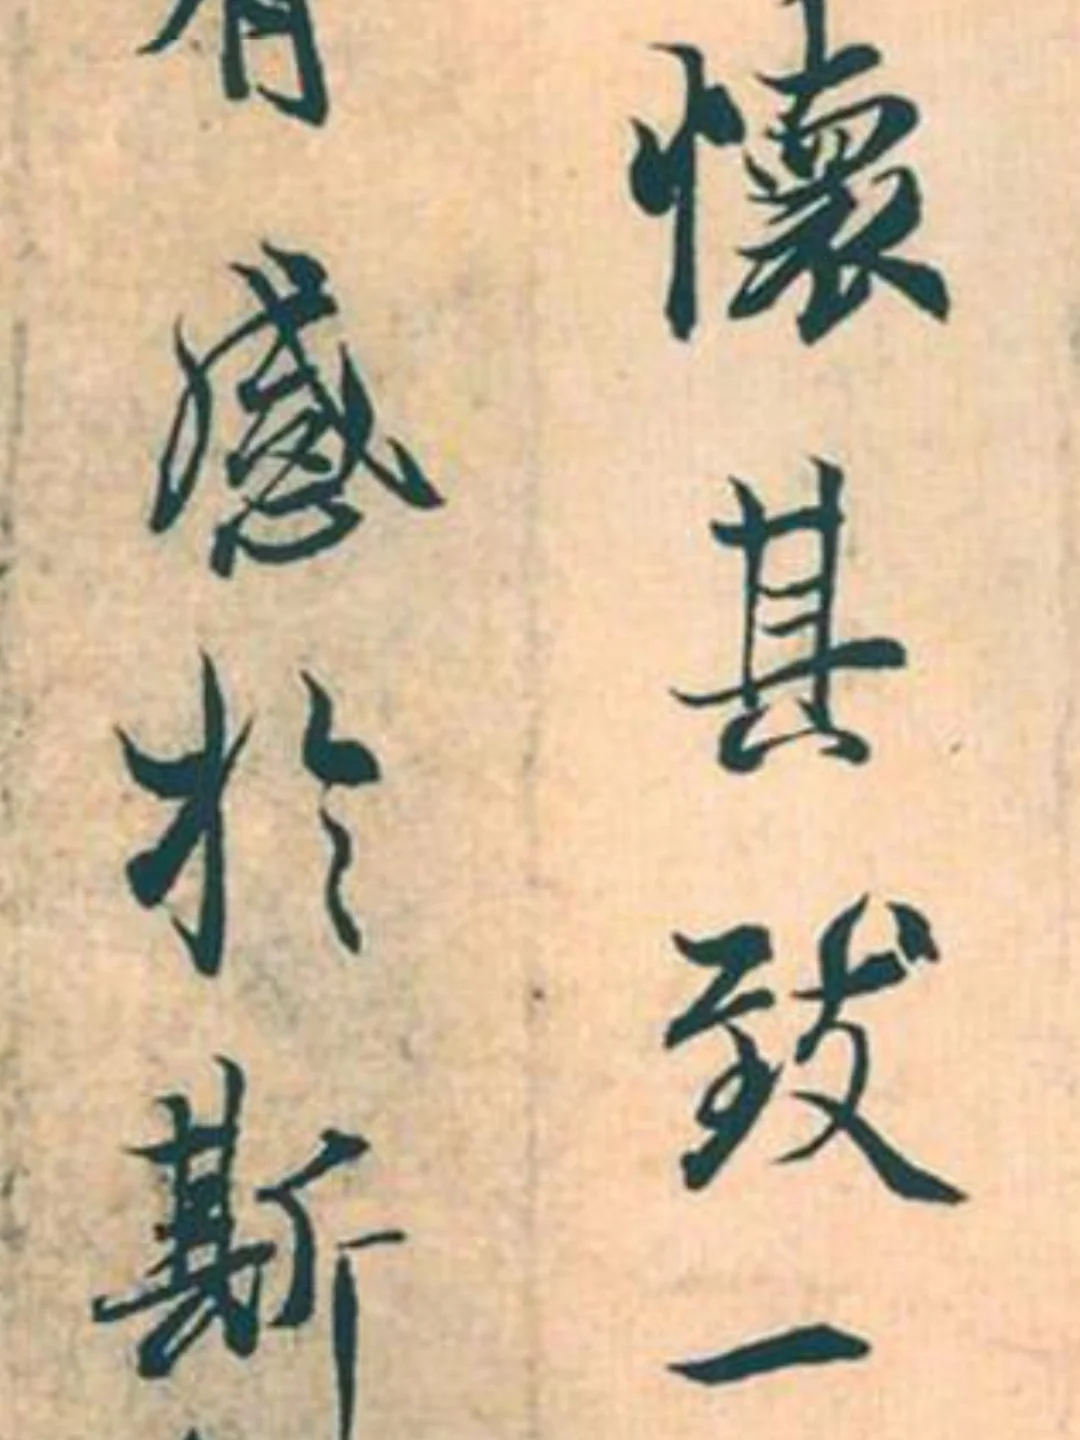 懷其致一
有感於斯